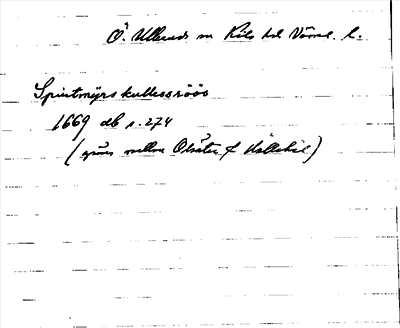 Ö. Ullerud sn Kils hd Värml. l.
Spintmyrskullesröös
1669 db s. 274
(gräns mellan Olsäter & Hällekil)